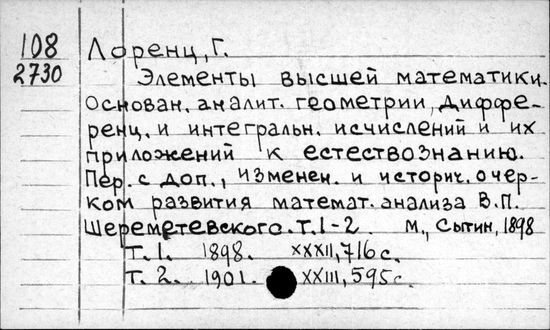 108 Лоренц, Г.
2730 Элементы высшей математики.
Основан. аналит. геометрии, диффе-
ренц. и интегральн. исчислений и их
приложений к естествознанию.
Пер. с доп., изменен. и историч. очер-
ком развития математ. анализа В.П.
Шереметевского. Т.1-2. М., Сытин, 1898
Т. 1. 1898. XXXII, 716 с.
Т. 2. 1901. XXIII, 595 с.